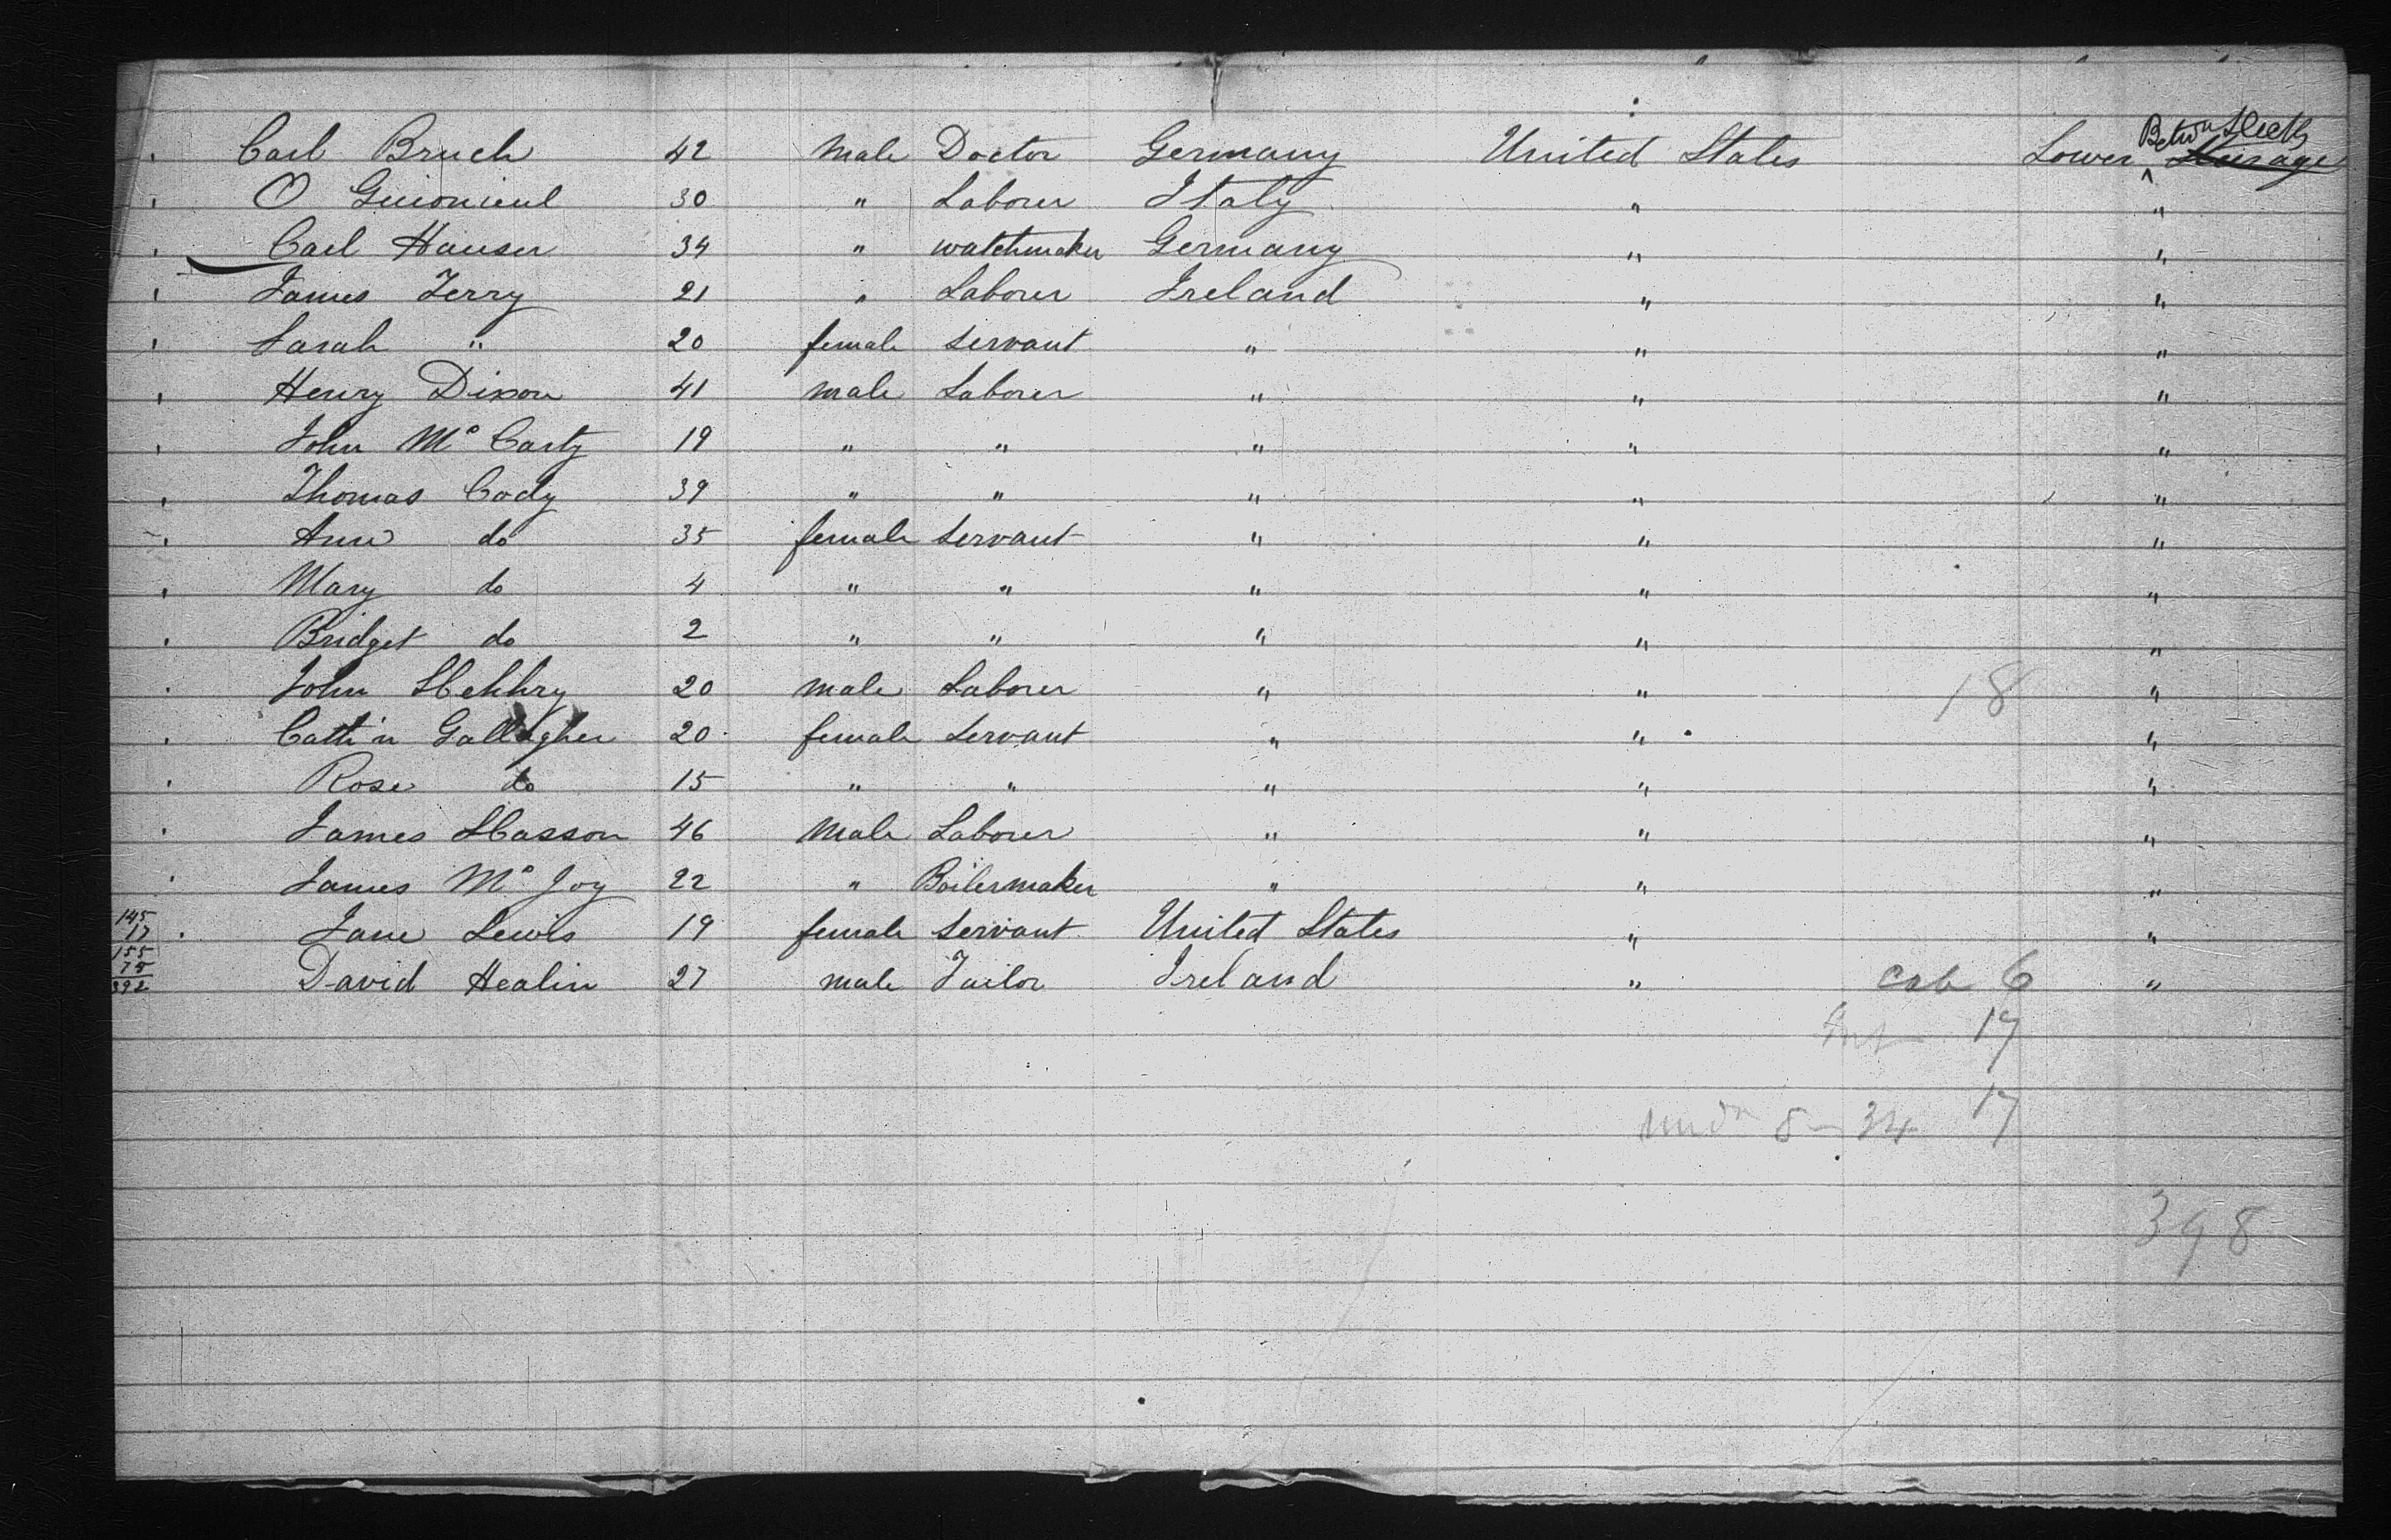 Betwn Decks
Carl Bruch 42 Male Doctor Germany United States Lower ^ Steerage
O 30 " Laborer Italy " "
Carl Hauser 34 " watchmaker Germany " "
James Terry 21 " Laborer Ireland " "
Sarah " 20 female servant " " "
Henry Dixon 41 male Laborer " " "
John Mc Carty 19 " " " " "
Thomas Cody 39 " " " " "
Ann do 35 female servant " " "
Mary do 4 " " " " "
Bridget do 2 " " " " "
John 20 male Laborer " " 18 "
Cath'n Gallagher 20 female servant " " "
Rose do 15 " " " " "
James Hasson 46 Male Laborer " " "
James Mc Joy 22 " Boilermaker " " "
145
17 Jane Lewis 19 female servant United States " "
155
75
392 David Healin 27 male Tailor Ireland " cab 6 "
17
5 - 34 17
398